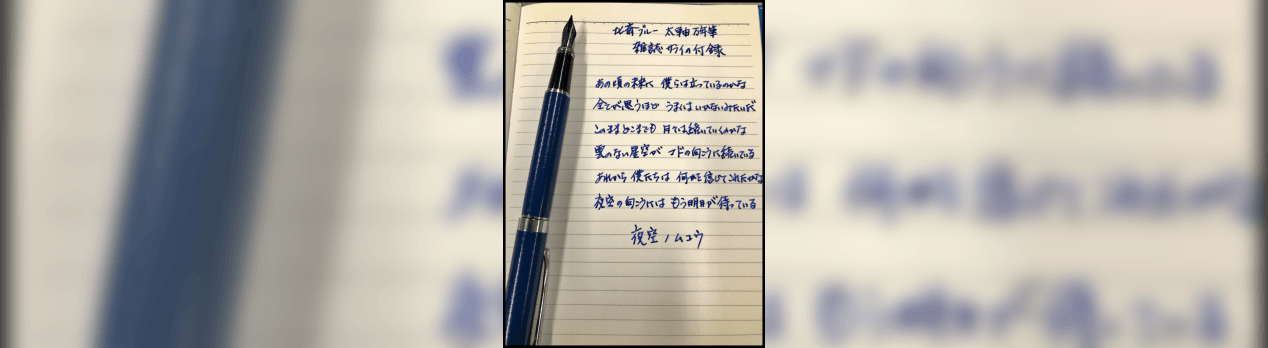 北斎ブルー 太軸万年筆
雑誌 サライの付録
あの頃の未来に 僕らは立っているのかな
全てが思うほど うまくはいかないみたいだ
このままどこまでも 日々は続いていくのかな
雲のない星空が マドの向こうに続いている
あれから 僕たちは 何かを信じてこれたかな
夜空の向こうには もう明日が待っている
夜空ノムコウ